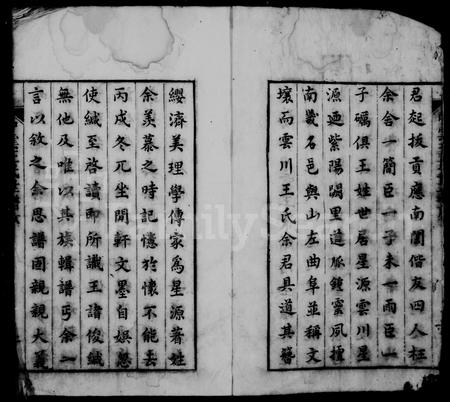 君起拔貢應南闈偕友四人枉
余舍一簡臣一子未一而臣一
子礪俱王姓世居星源雲川星
源迺紫陽闕里道脈鍾靈夙擅
南畿名邑與山左曲阜並稱文
壤而雲川王氏余君具道其簪
纓濟美理學傳家為星源著姓
余羨慕之時記憶於懷不能去
丙戌冬兀坐閒軒文墨自娛忽
使緘至啓讀即所識王諱俊緘
無他及唯以其族輯譜丐余一
言以敘之余思譜固親親大義